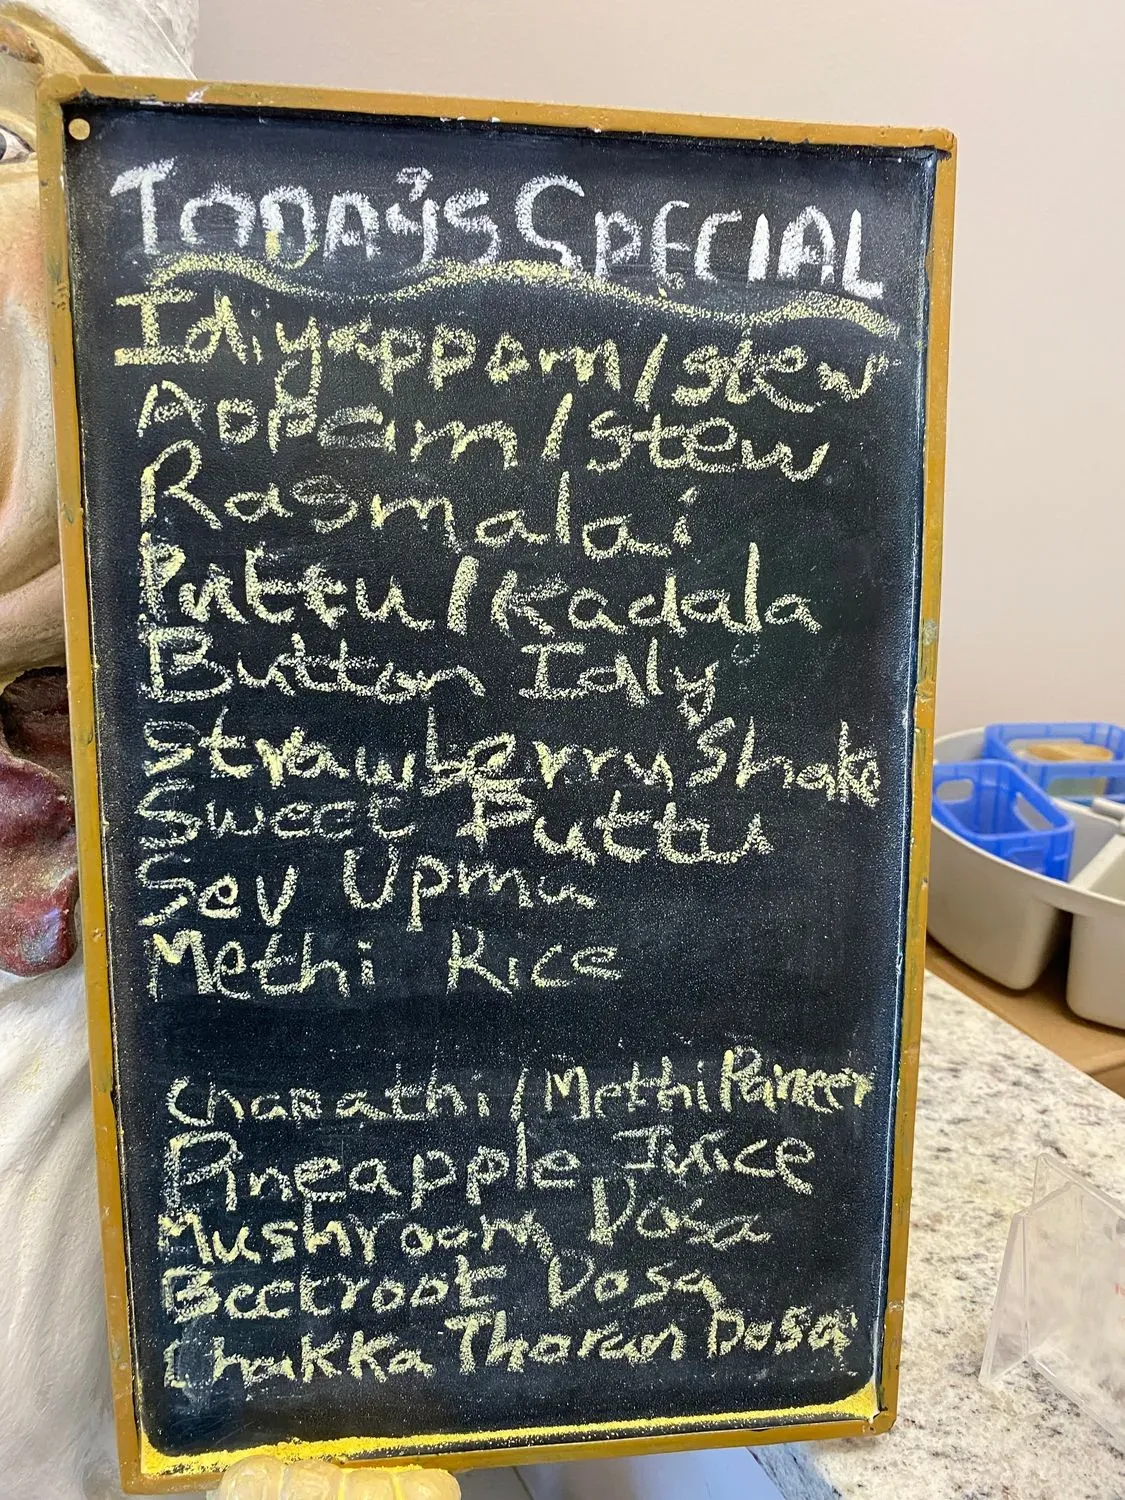 TODAy's SPECIAL
Idiyappam/stew
Appam/stew
Rasmalai
Puttu/Kadala
Button Idly
Strawberry Shake
Sweet Puttu
Sev Upma
Methi Rice
Chapathi/Methi Paneer
Pineapple Juice
Mushroom Dosa
Beetroot Dosa
Chakka Thoran Dosa